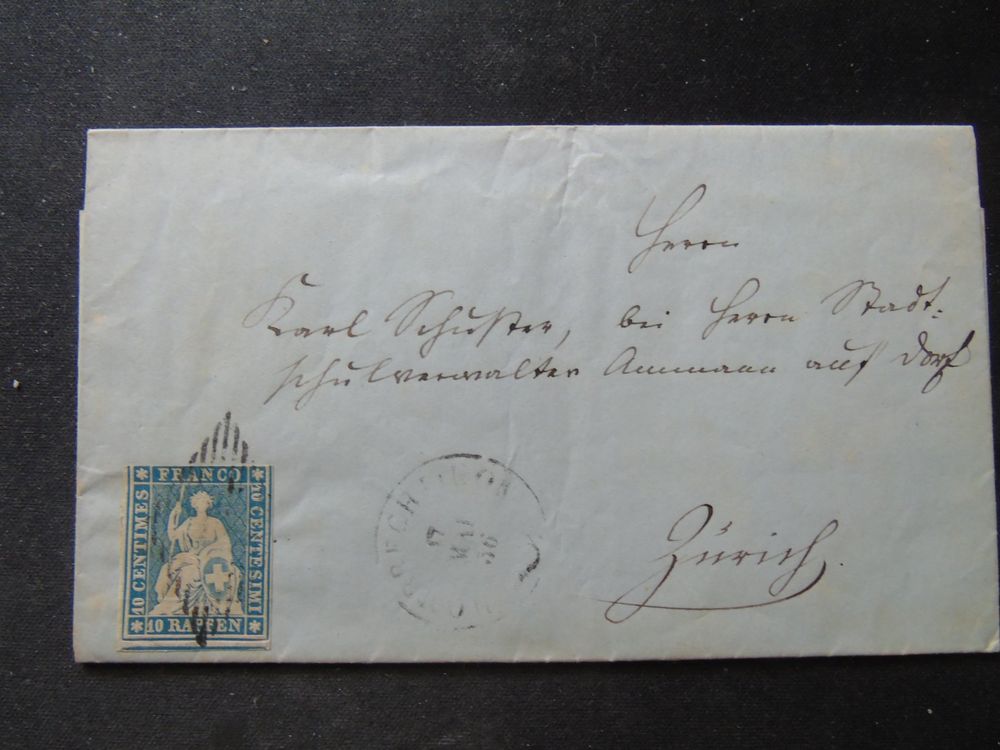 Herrn
Karl Schuster, bei Herrn Stadt:
schulverwalter Ammann auf Dorf
Zürich.
FRANCO
10 CENTIMES
10 CENTESIMI
10 RAPPEN
17
MAI
56